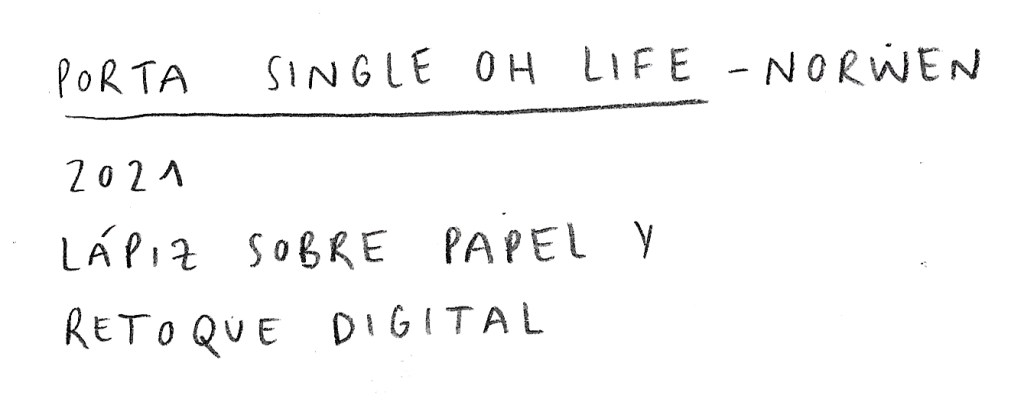 PORTA SINGLE OH LIFE - NORWEN
2021
LÁPIZ SOBRE PAPEL Y
RETOQUE DIGITAL